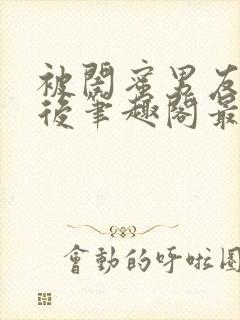 被閨蜜男友
後筆趣閣最
會動的呼啦圈